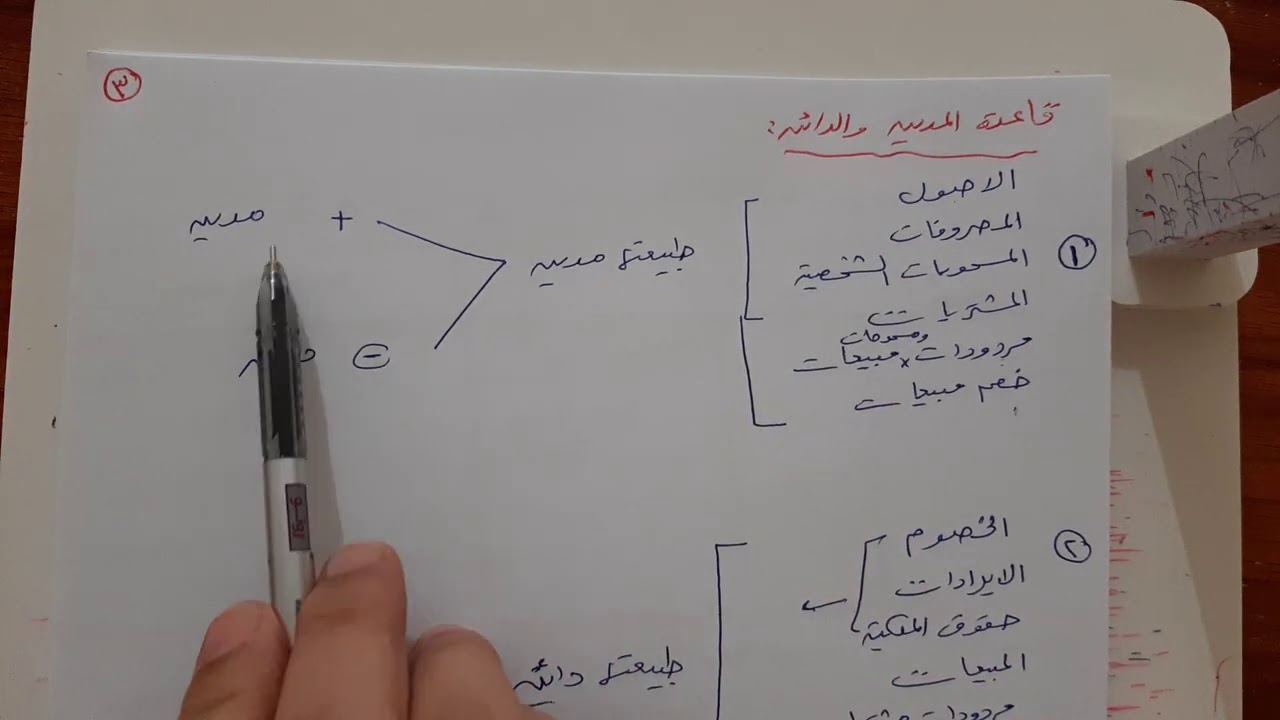 ٣
قاعدة المدين والدائن:
١
الاصول
المصروفات
المسحوبات الشخصية
المشتريات
مردودات ومسموحات مبيعات
خصم مبيعات
طبيعتها مدين
+ مدين
-
٢
الخصوم
الايرادات
حقوق الملكية
المبيعات
مردودات
طبيعتها دائن